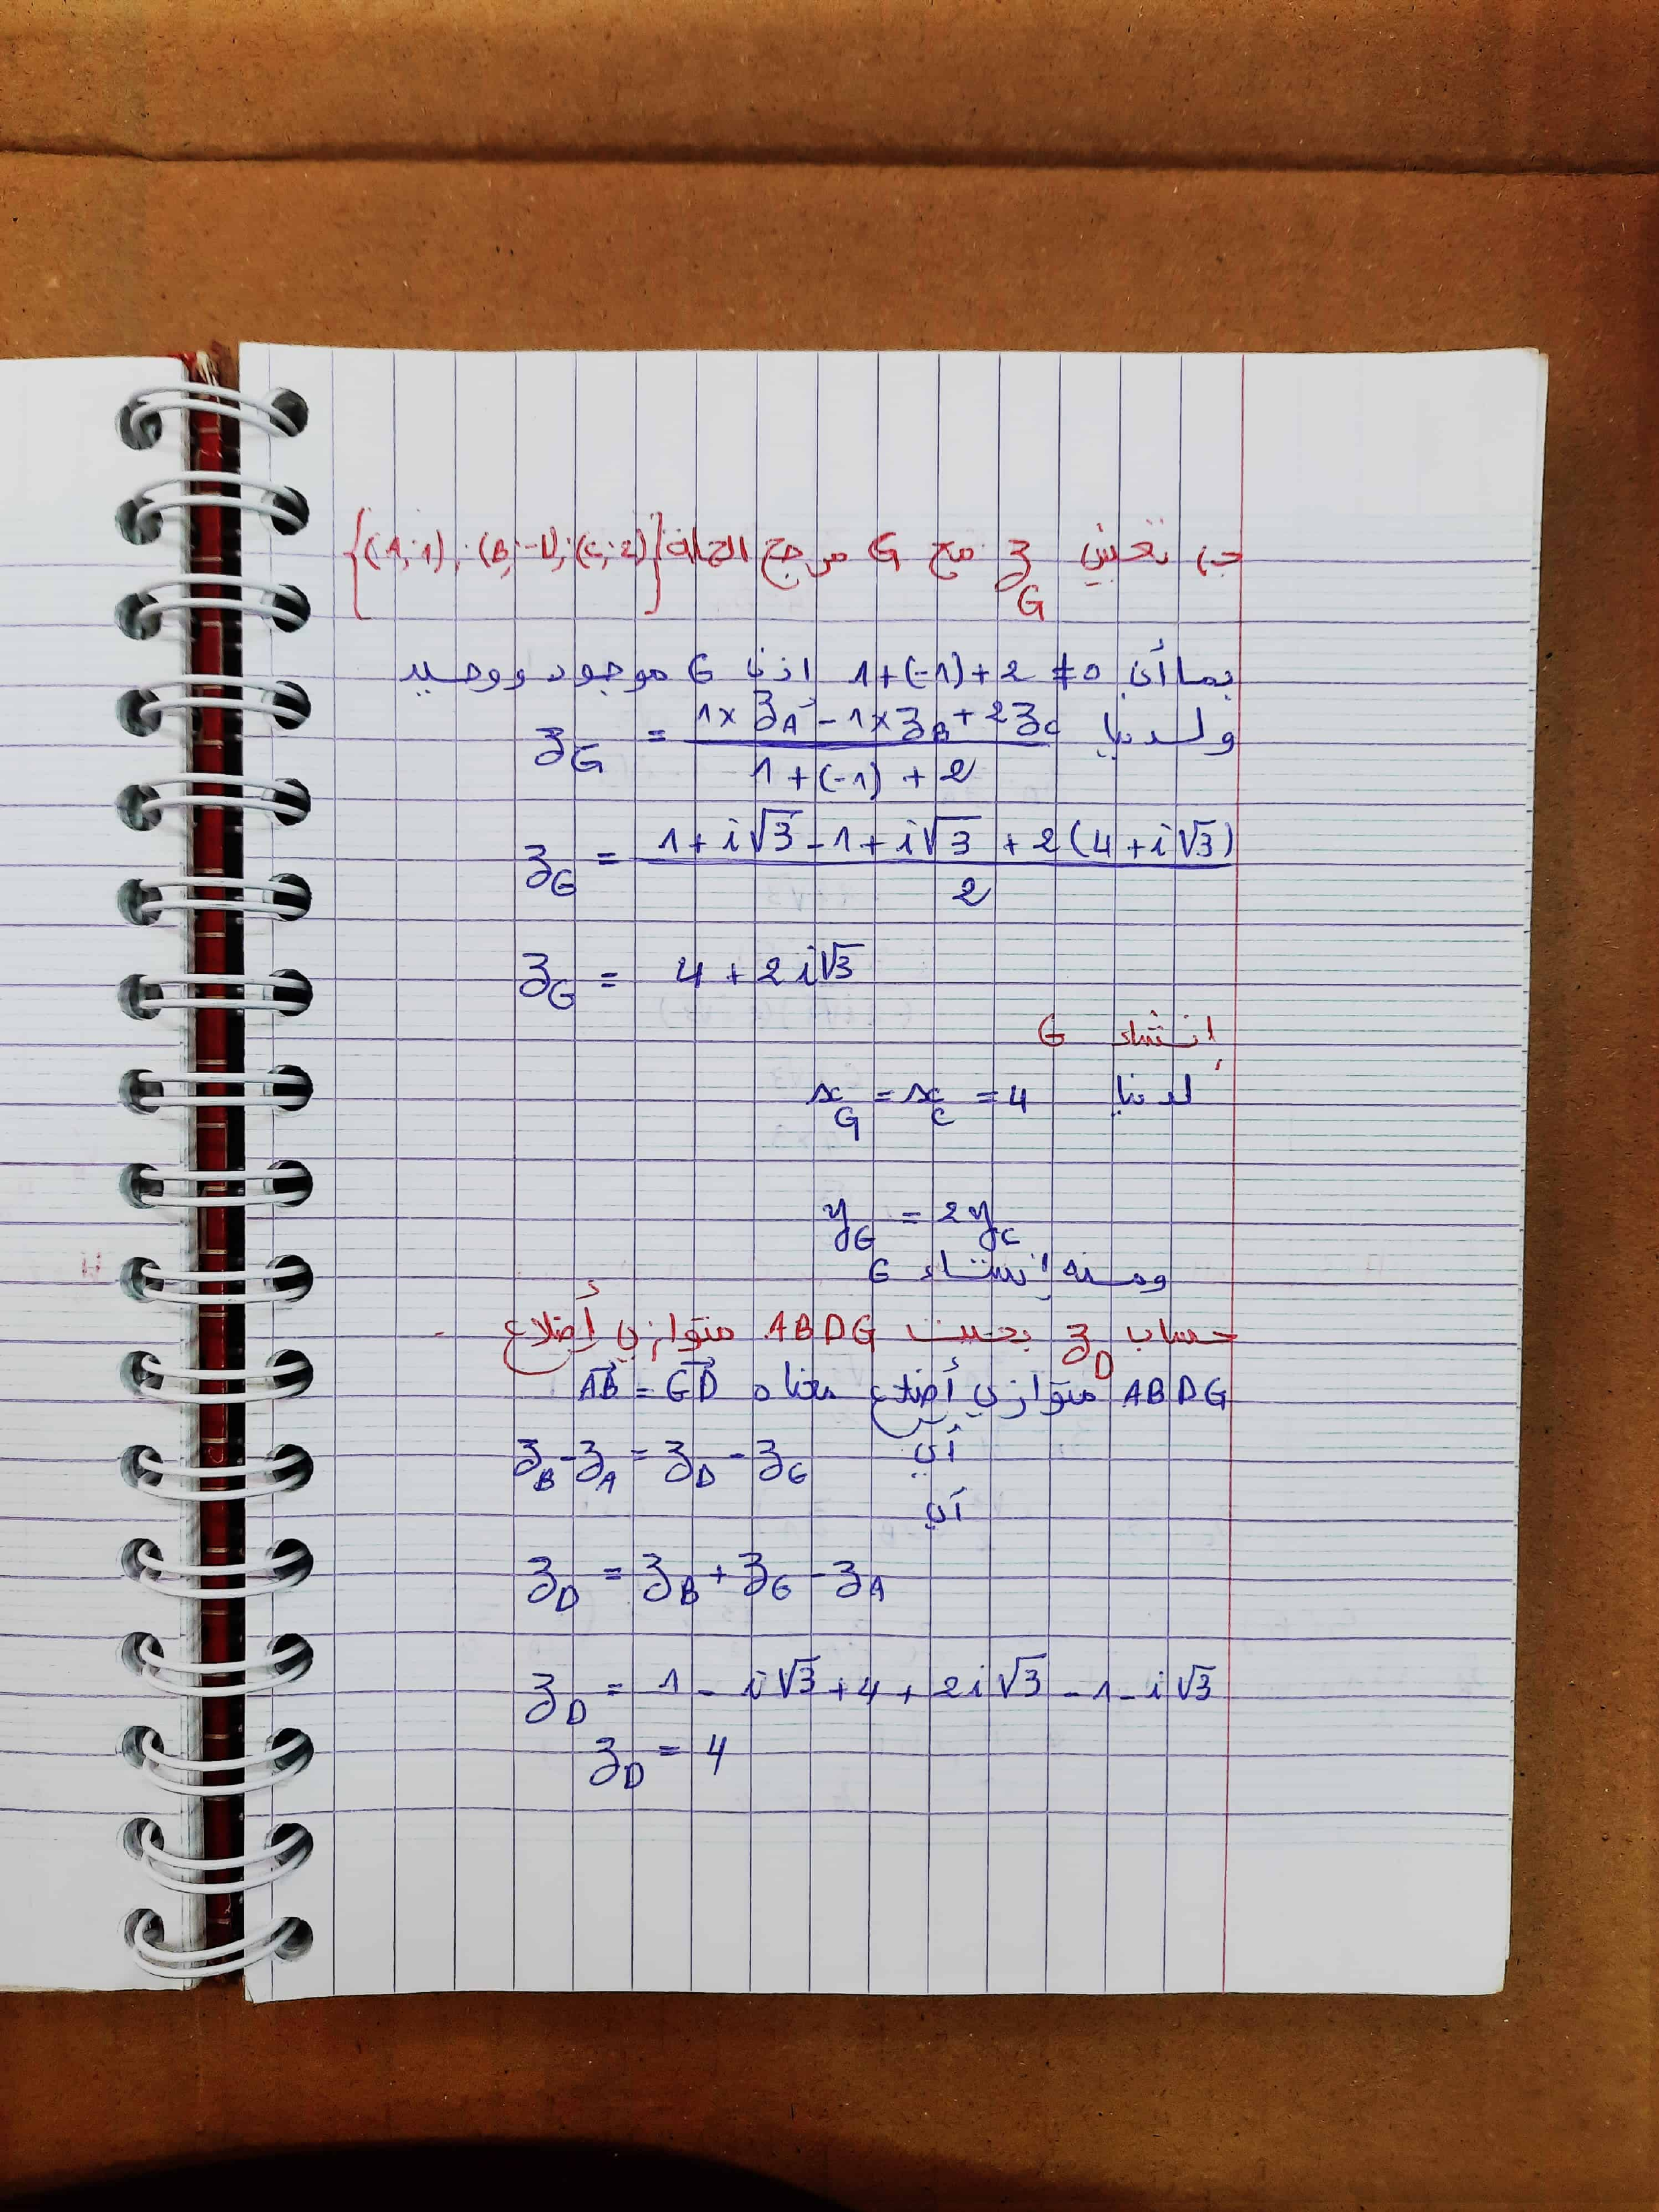 جـ) تعيين z_G مع G مرجح الجملة {(A;1);(B;-1);(C;2)}
بما أن 1+(-1)+2 ≠ 0 اذن G موجود ووحيد
ولدينا z_G = (1×z_A - 1×z_B + 2z_C) / (1+(-1)+2)
z_G = (1+i√3 - 1+i√3 + 2(4+i√3)) / 2
z_G = 4+2i√3
إنشاء G
لدينا x_G = x_C = 4
y_G = 2y_C
ومنه إنشاء G
حساب z_D بحيث ABDG متوازي أضلاع
ABDG متوازي أضلاع معناه AB⃗ = GD⃗
أي z_B - z_A = z_D - z_G
أي
z_D = z_B + z_G - z_A
z_D = 1 - i√3 + 4 + 2i√3 - 1 - i√3
z_D = 4